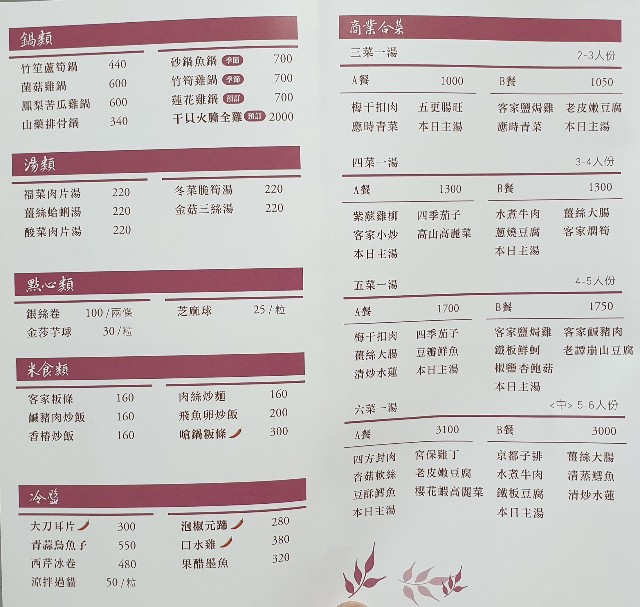 鍋類
竹笙蘆筍鍋 440
菌菇雞鍋 600
鳳梨苦瓜雞鍋 600
山藥排骨鍋 340
砂鍋魚鍋 季節 700
竹筍雞鍋 季節 700
蓮花雞鍋 預訂 700
干貝火膧全雞 預訂 2000
湯類
福菜肉片湯 220
薑絲蛤蜊湯 220
酸菜肉片湯 220
冬菜脆筍湯 220
金菇三絲湯 220
點心類
銀絲卷 100/兩條
金莎芋球 30/粒
芝麻球 25/粒
米食類
客家粄條 160
鹹豬肉炒飯 160
香椿炒飯 160
肉絲炒麵 160
飛魚卵炒飯 200
嗆鍋粄條 300
冷盤
大刀耳片 300
青蒜烏魚子 550
西芹冰卷 480
涼拌過貓 50/粒
泡椒元蹄 280
口水雞 380
果醋墨魚 320
商業合菜
三菜一湯 2-3人份
A餐 1000
梅干扣肉 五更腸旺
應時青菜 本日主湯
B餐 1050
客家鹽焗雞 老皮嫩豆腐
應時青菜 本日主湯
四菜一湯 3-4人份
A餐 1300
紫蘇雞柳 四季茄子
客家小炒 高山高麗菜
本日主湯
B餐 1300
水煮牛肉 薑絲大腸
蔥燒豆腐 客家燜筍
本日主湯
五菜一湯 4-5人份
A餐 1700
梅干扣肉 四季茄子
薑絲大腸 豆瓣鮮魚
清炒水蓮 本日主湯
B餐 1750
客家鹽焗雞 客家鹹豬肉
鐵板鮮蚵 老譚崩山豆腐
椒鹽杏鮑菇
本日主湯
六菜一湯 <中> 5-6人份
A餐 3100
四方封肉 宮保雞丁
杏菇軟絲 老皮嫩豆腐
豆酥鱈魚 櫻花蝦高麗菜
本日主湯
B餐 3000
京都子排 薑絲大腸
水煮牛肉 清蒸鱈魚
鐵板豆腐 清炒水蓮
本日主湯